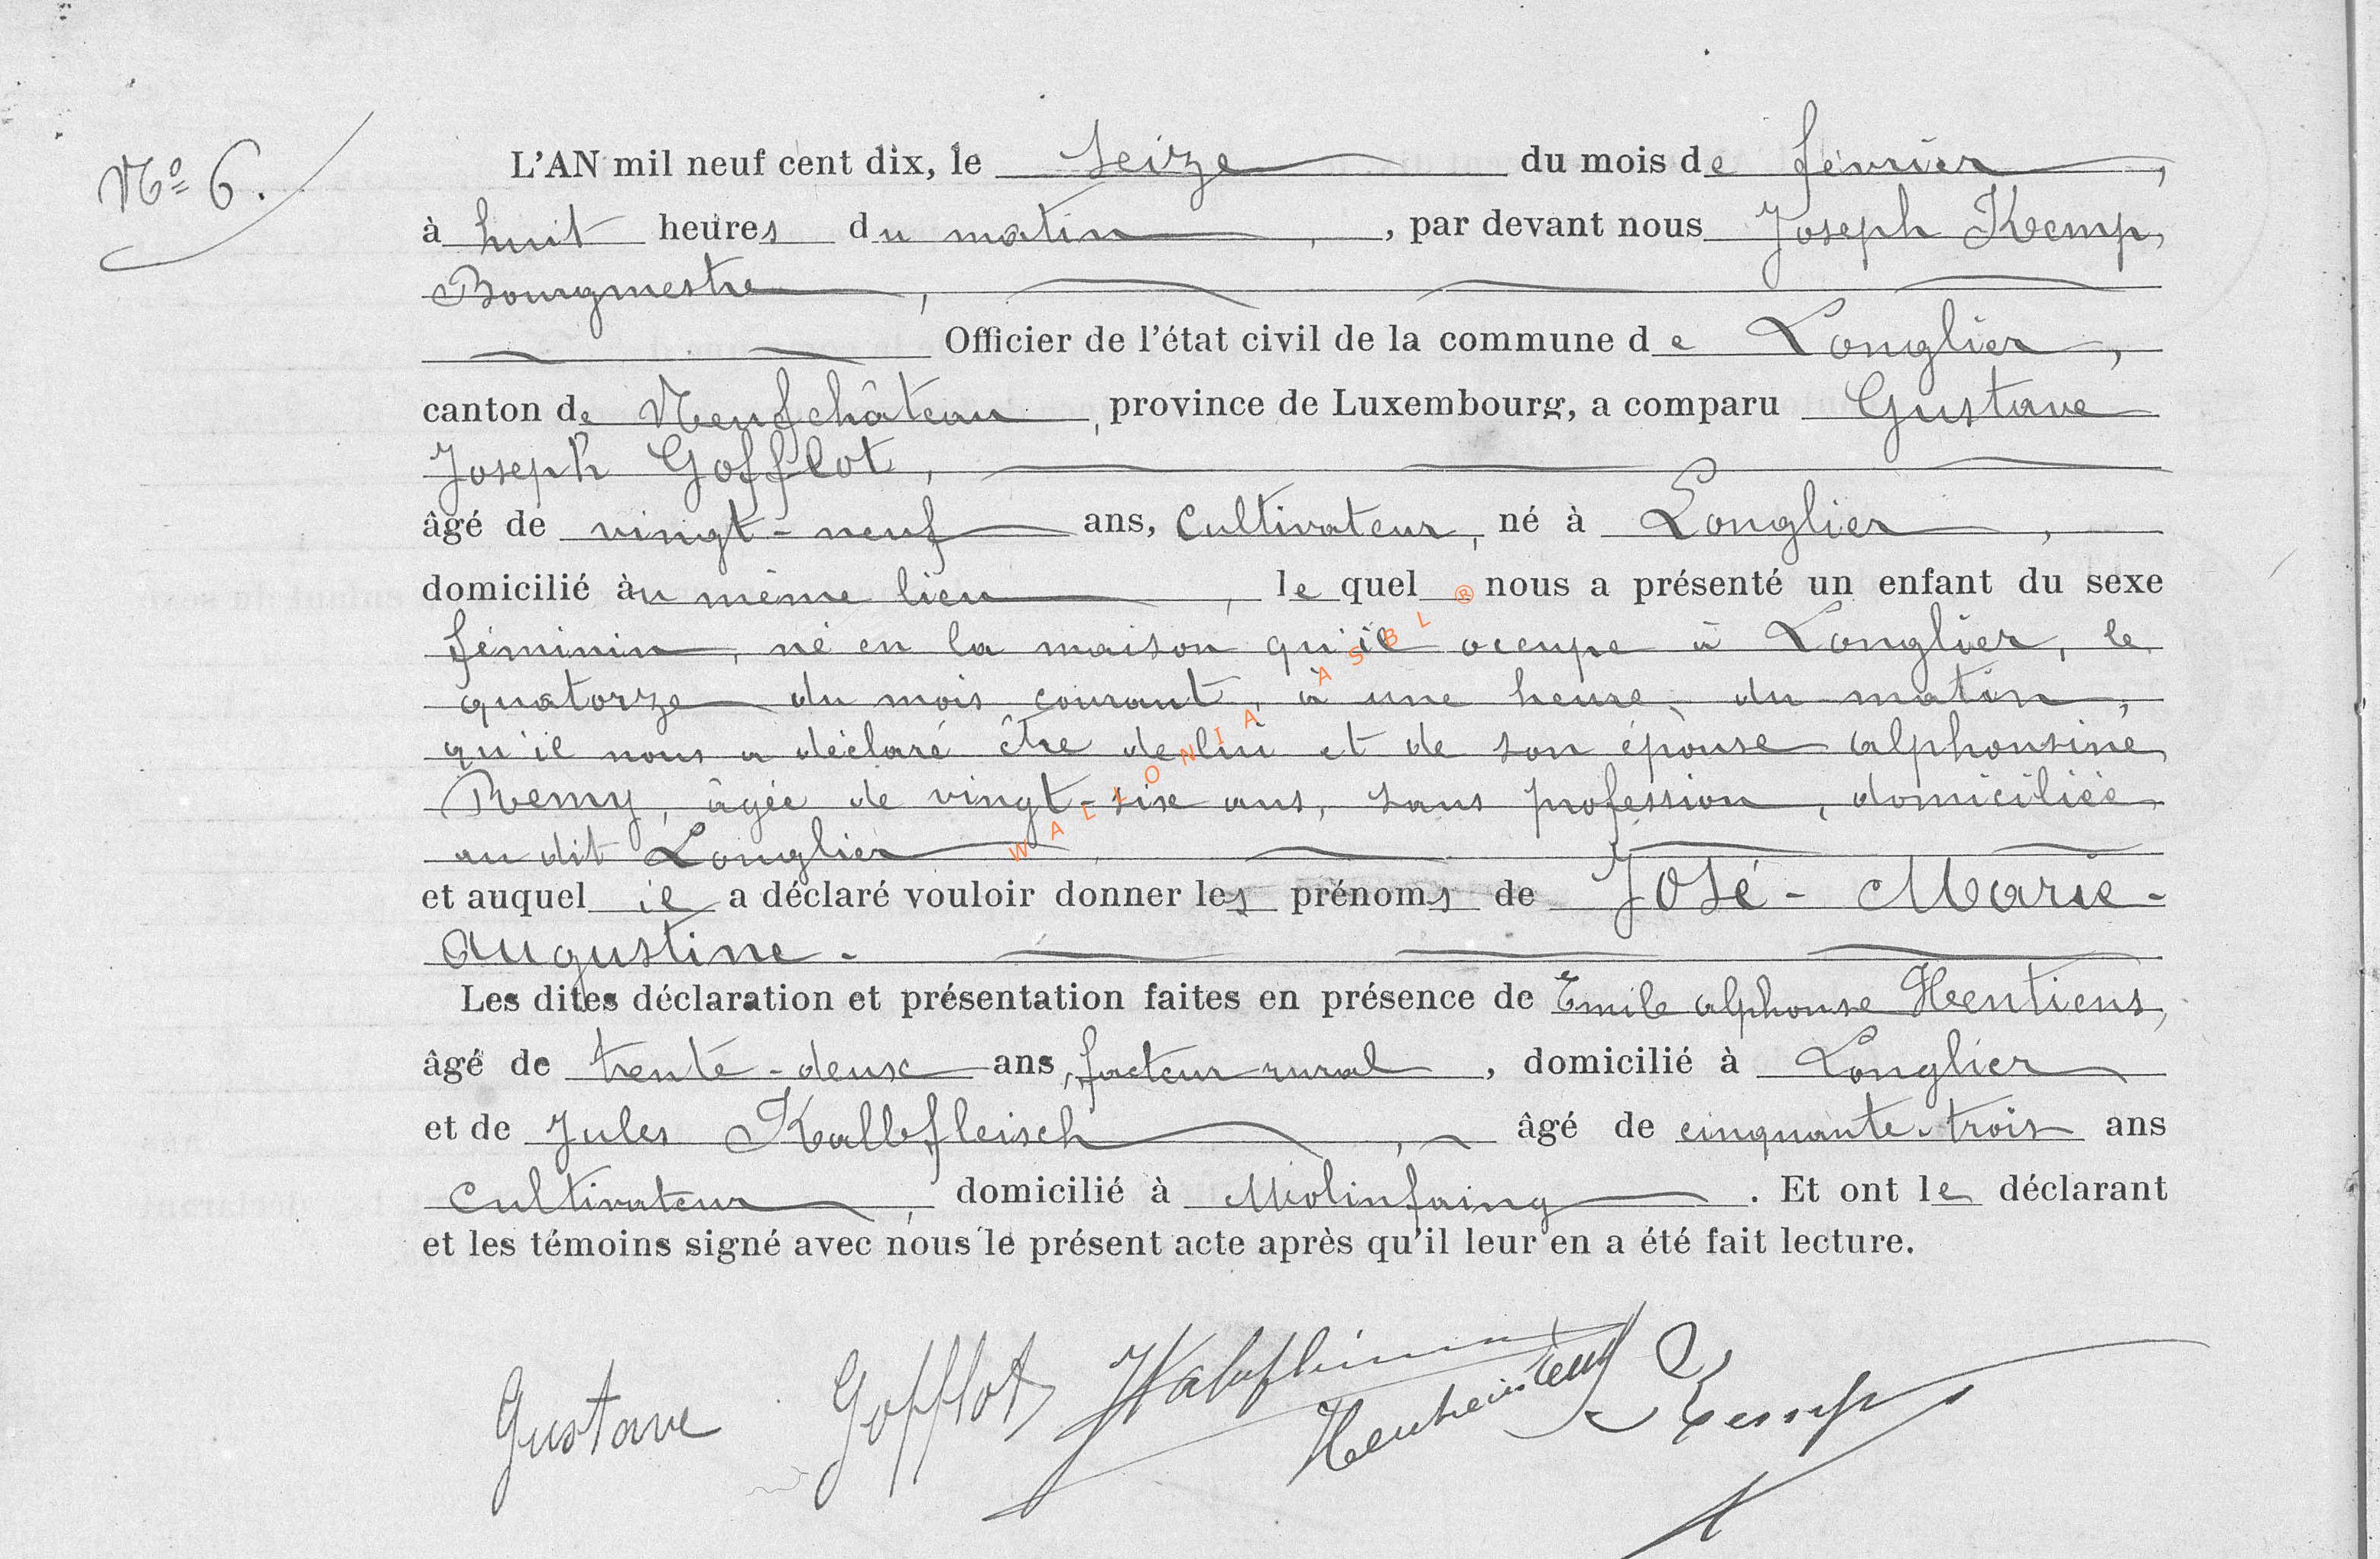 Nº 6.
L'AN mil neuf cent dix, le seize du mois de février,
à huit heures du matin, par devant nous Joseph Kemp,
Bourgmestre,
Officier de l'état civil de la commune de Longlier,
canton de Neufchâteau, province de Luxembourg, a comparu Gustave
Joseph Gofflot,
âgé de vingt-neuf ans, cultivateur, né à Longlier,
domicilié au même lieu, lequel nous a présenté un enfant du sexe
féminin, né en la maison qu'il occupe à Longlier, le
quatorze du mois courant, à une heure du matin,
qu'il nous a déclaré être de lui et de son épouse Alphonsine
Remy, âgée de vingt-six ans, sans profession, domiciliée
au dit Longlier
et auquel il a déclaré vouloir donner les prénoms de José-Marie-
Augustine.
Les dites déclaration et présentation faites en présence de Emile Alphonse Hentiens,
âgé de trente-deux ans, facteur rural, domicilié à Longlier
et de Jules Kalbfleisch, âgé de cinquante-trois ans
cultivateur, domicilié à Molinfaing. Et ont le déclarant
et les témoins signé avec nous le présent acte après qu'il leur en a été fait lecture.
Gustave Gofflot Kemp
WALLONIA ASBL ®